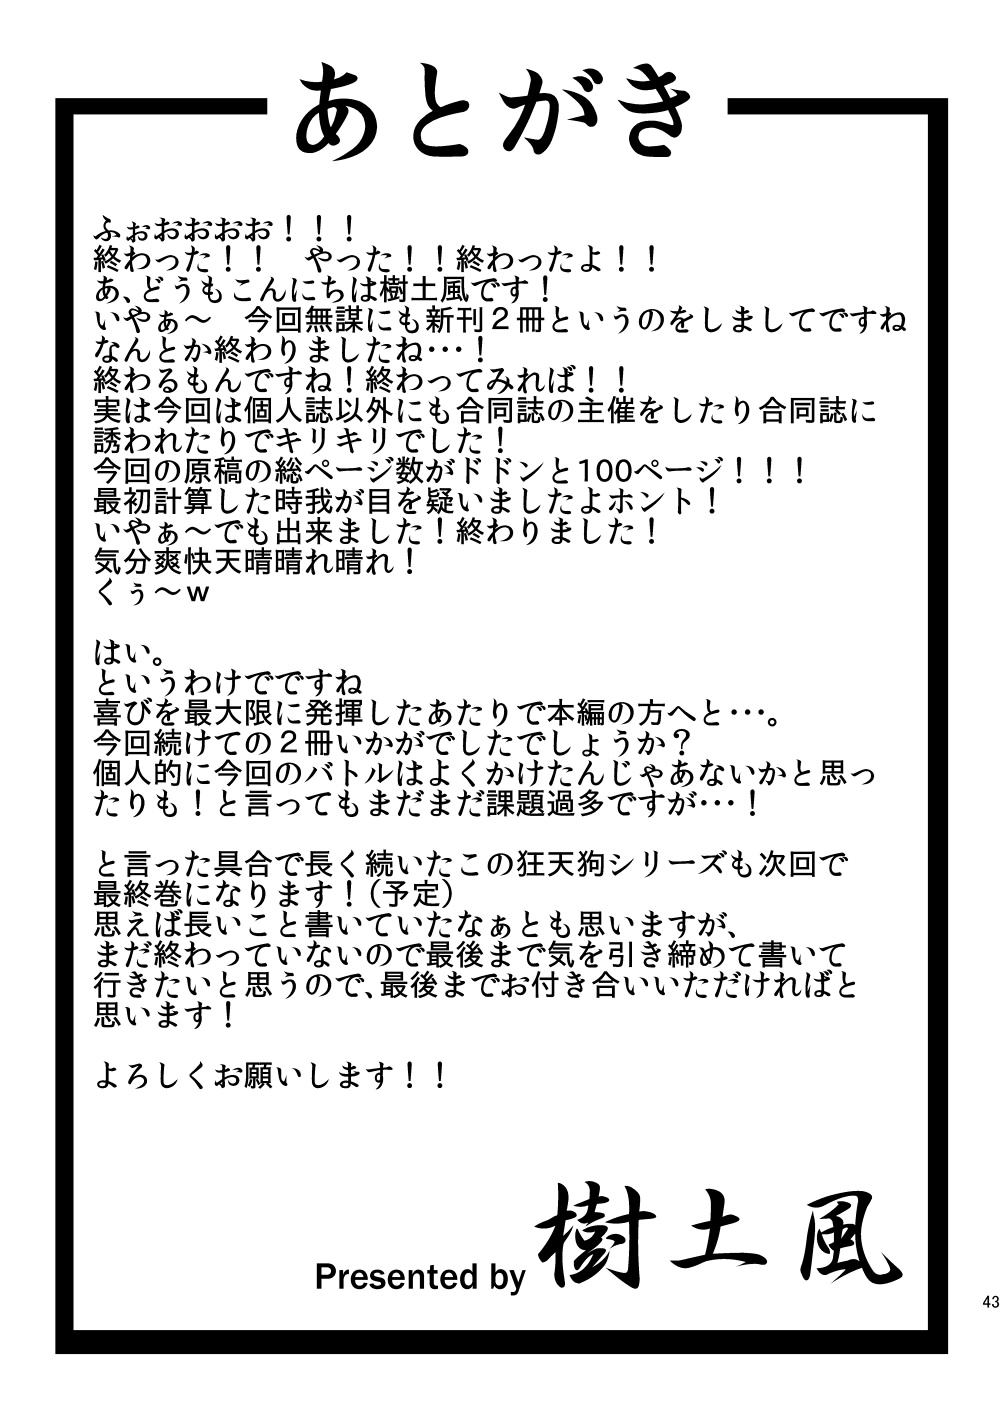 あとがき
ふぉおおおお！！！
終わった！！　やった！！終わったよ！！
あ、どうもこんにちは樹土風です！
いやぁ～　今回無謀にも新刊２冊というのをしましてですね
なんとか終わりましたね･･･！
終わるもんですね！終わってみれば！！
実は今回は個人誌以外にも合同誌の主催をしたり合同誌に
誘われたりでキリキリでした！
今回の原稿の総ページ数がドドンと100ページ！！！
最初計算した時我が目を疑いましたよホント！
いやぁ～でも出来ました！終わりました！
気分爽快天晴晴れ晴れ！
くぅ～w
はい。
というわけでですね
喜びを最大限に発揮したあたりで本編の方へと･･･。
今回続けての２冊いかがでしたでしょうか？
個人的に今回のバトルはよくかけたんじゃあないかと思っ
たりも！と言ってもまだまだ課題過多ですが･･･！
と言った具合で長く続いたこの狂天狗シリーズも次回で
最終巻になります！（予定）
思えば長いこと書いていたなぁとも思いますが、
まだ終わっていないので最後まで気を引き締めて書いて
行きたいと思うので、最後までお付き合いいただければと
思います！
よろしくお願いします！！
Presented by 樹土風
43